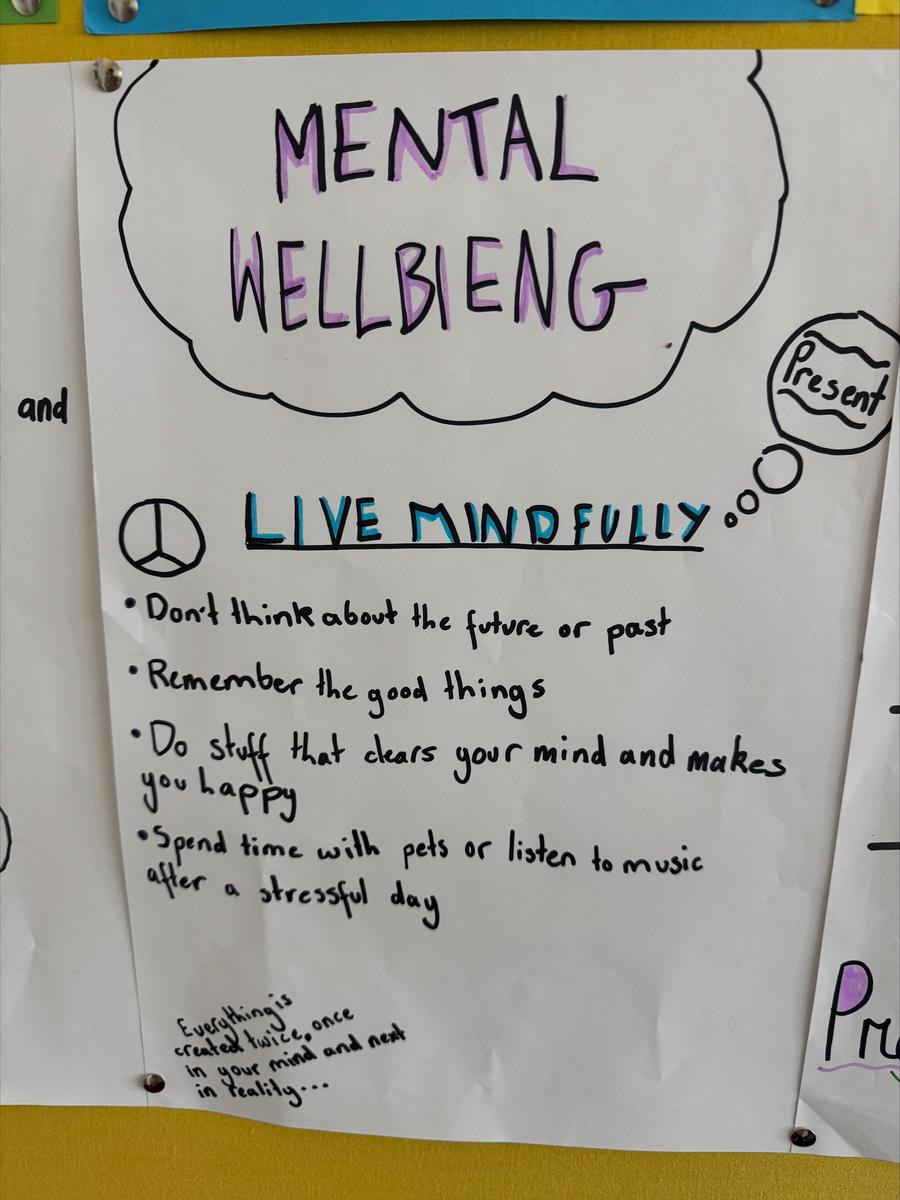 MENTAL
WELLBIENG
Present
and
LIVE MINDFULLY
• Don't think about the future or past
• Remember the good things
• Do stuff that clears your mind and makes
you happy
• Spend time with pets or listen to music
after a stressful day
Everything is
created twice, once
in your mind and next
in reality...